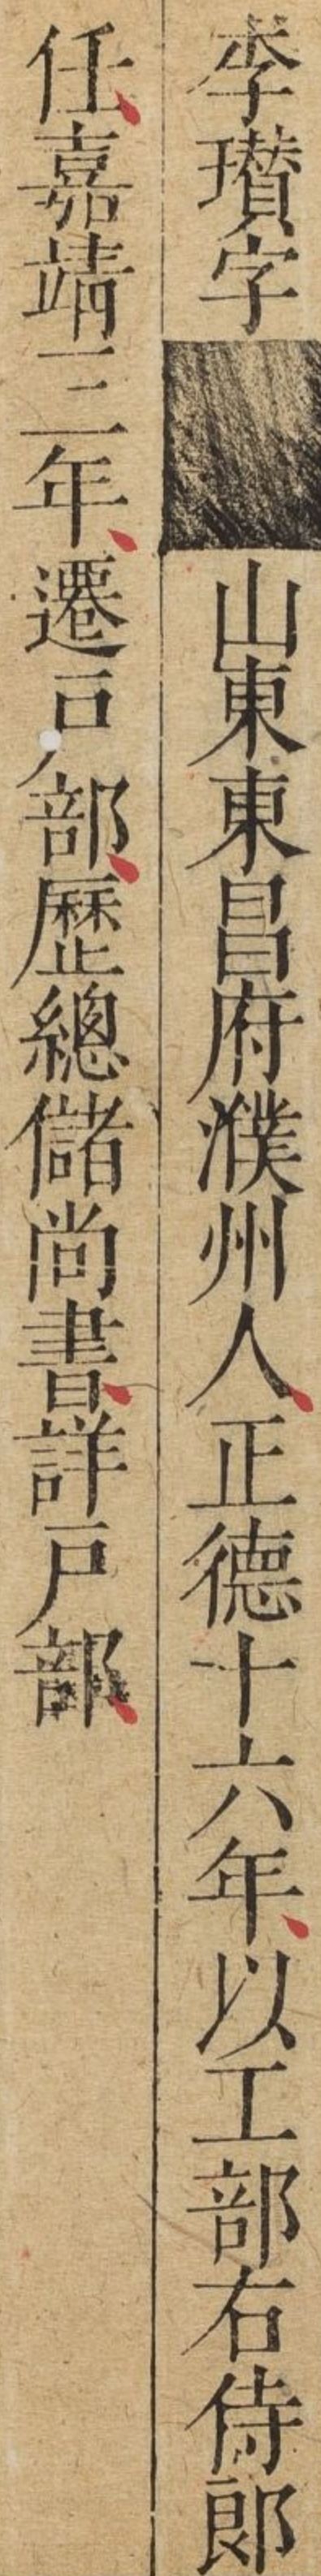 李瓚字■山東東昌府濮州人、正德十六年、以工部右侍郎
任、嘉靖三年、遷戶部、歷總儲尚書、詳戶部、